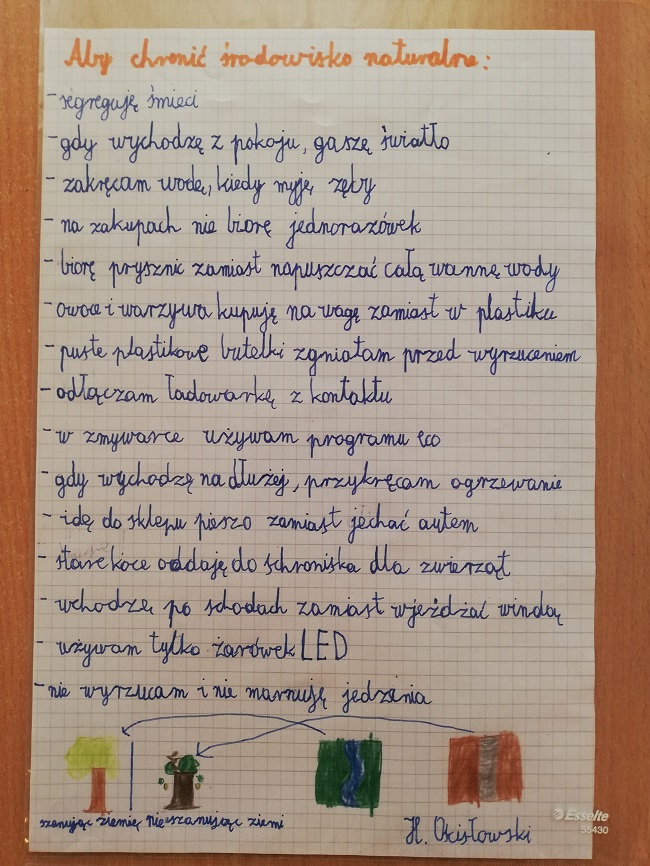 Aby chronić środowisko naturalne:
- segreguję śmieci
- gdy wychodzę z pokoju, gaszę światło
- zakręcam wodę, kiedy myję zęby
- na zakupach nie biorę jednorazówek
- biorę prysznic zamiast napuszczać całą wannę wody
- owoce i warzywa kupuję na wagę zamiast w plastiku
- puste plastikowe butelki zgniatam przed wyrzuceniem
- odłączam ładowarkę z kontaktu
- w zmywarce używam programu eco
- gdy wychodzę na dłużej, przykręcam ogrzewanie
- idę do sklepu pieszo zamiast jechać autem
- stare koce oddaję do schroniska dla zwierząt
- wchodzę po schodach zamiast wjeżdżać windą
- używam tylko żarówek LED
- nie wyrzucam i nie marnuję jedzenia
szanując ziemię nie szanując ziemi
H. Ocisłowski
Esselte
55430